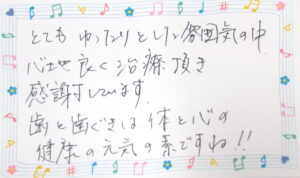 とても ゆったりとした雰囲気の中
心地良く治療頂き
感謝しています.
歯と歯ぐきは、体と心の
健康の元気の素ですね!!